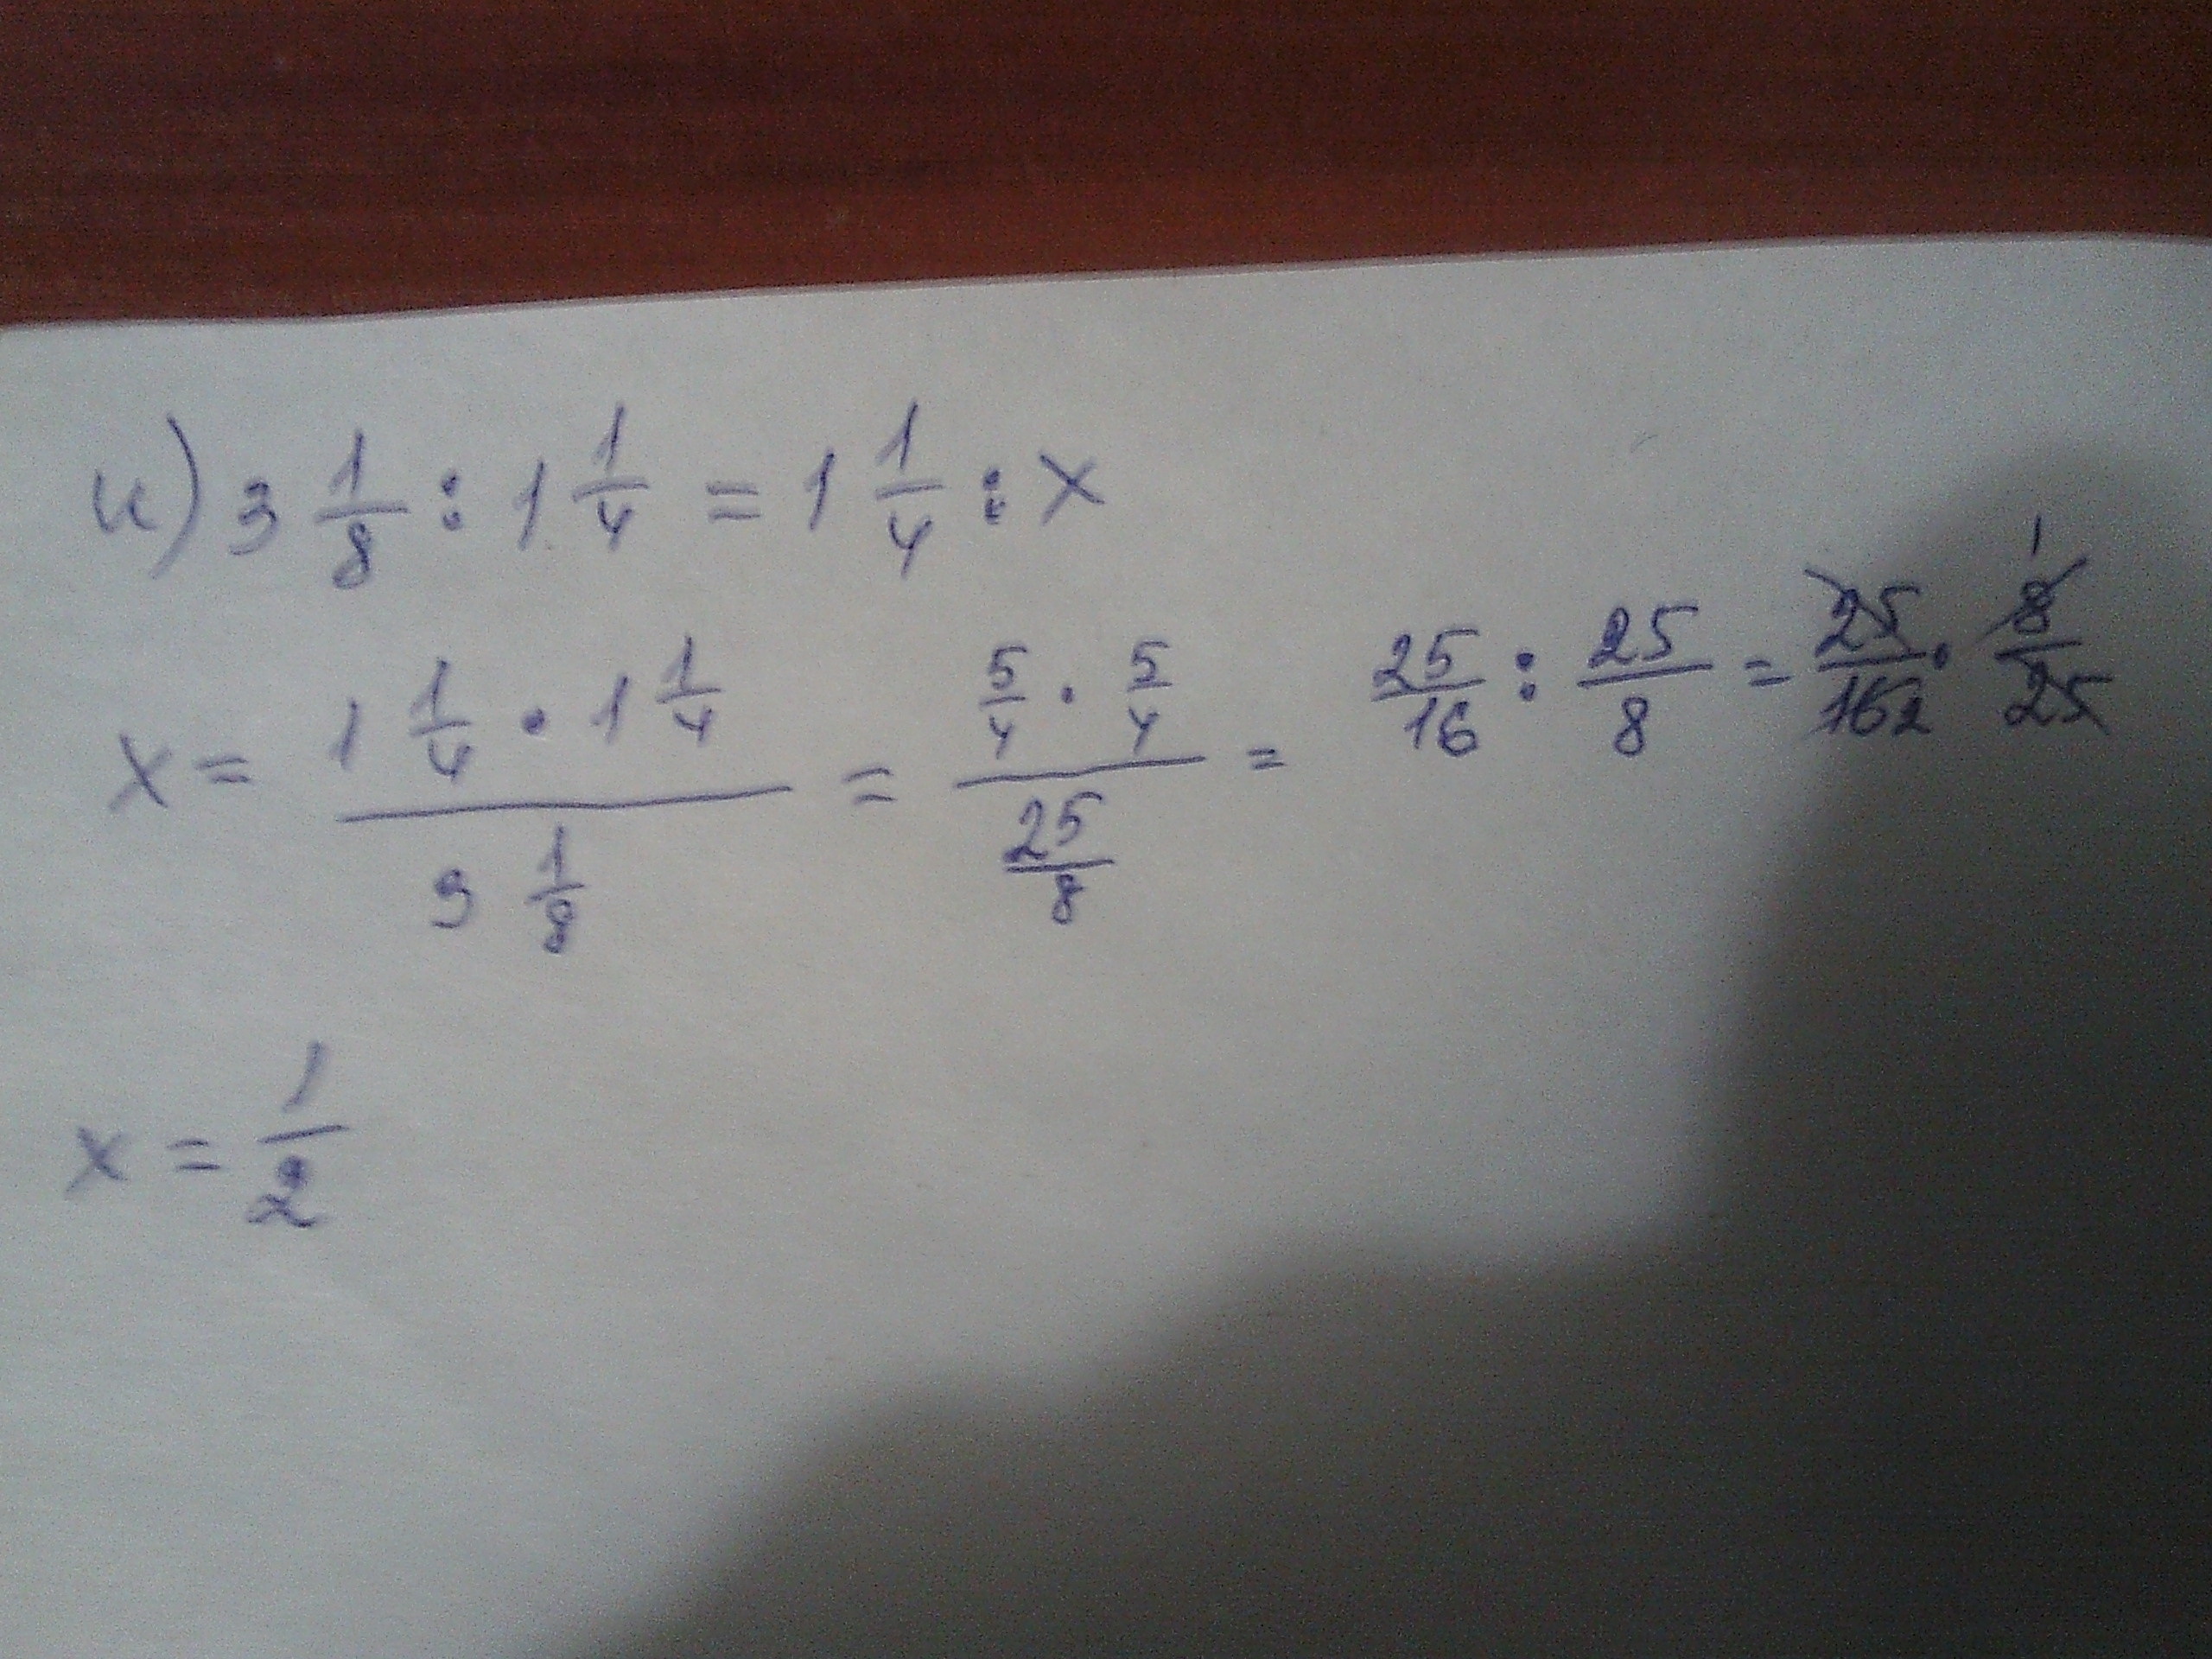 и) 3 1/8 : 1 1/4 = 1 1/4 : x
x = (1 1/4 · 1 1/4)/(3 1/8) = (5/4 · 5/4)/(25/8) = 25/16 : 25/8 = 25/16 2 · 8/25 1
x = 1/2